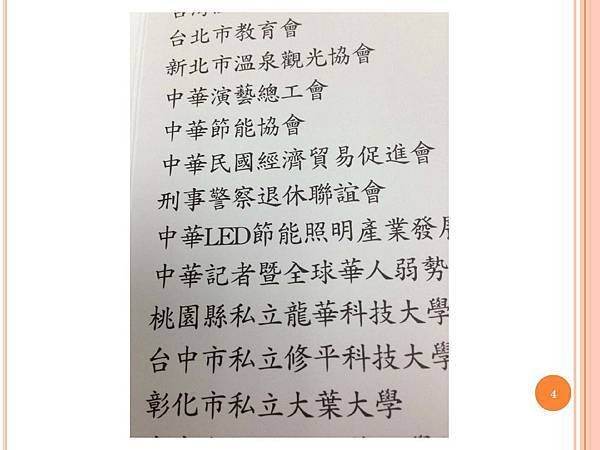 台北市教育會
新北市溫泉觀光協會
中華演藝總工會
中華節能協會
中華民國經濟貿易促進會
刑事警察退休聯誼會
中華LED節能照明產業發展
中華記者暨全球華人弱勢
桃園縣私立龍華科技大學
台中市私立修平科技大學
彰化市私立大葉大學
4